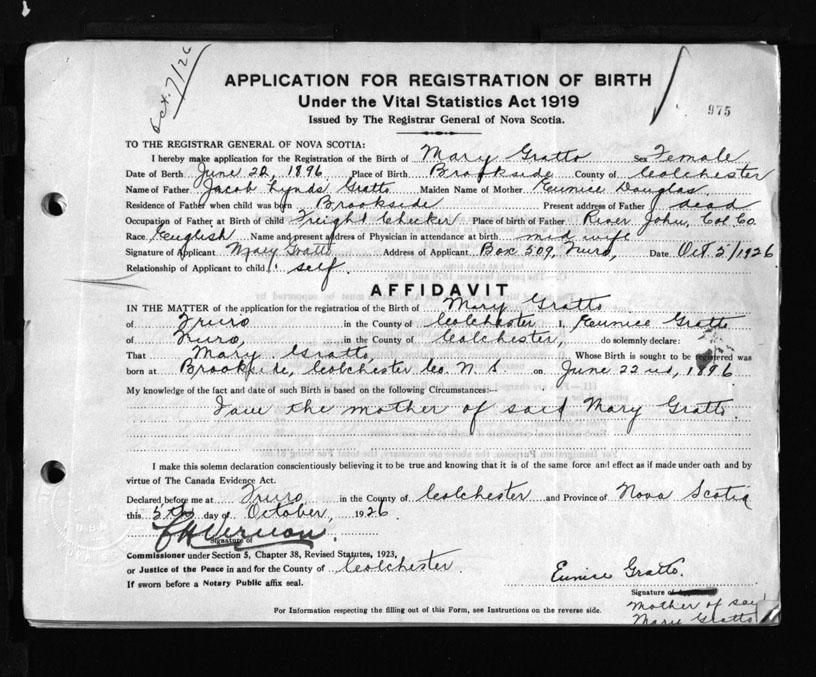 Oct. 7/26
APPLICATION FOR REGISTRATION OF BIRTH
Under the Vital Statistics Act 1919
975
Issued by The Registrar General of Nova Scotia.
TO THE REGISTRAR GENERAL OF NOVA SCOTIA:
I hereby make application for the Registration of the Birth of Mary Gratto Sex Female
Date of Berth June 22, 1896 Place of Birth Brookside County of Colchester
Name of Father Jacob Lynds Gratto Maiden Name of Mother Eunice Douglas
Residence of Father when child was born Brookside Present address of Father dead
Occupation of Father at Birth of child Freight Checker Place of birth of Father River John, Col. Co.
Race English Name and present address of Physician in attendance at birth mid wife
Signature of Applicant Mary Gratto Address of Applicant Box 509, Truro, Date Oct 5/1926
Relationship of Applicant to child self.
AFFIDAVIT
IN THE MATTER of the application for the registration of the Birth of Mary Gratto
of Truro in the County of Colchester I, Eunice Gratto
of Truro, in the County of Colchester, do solemnly declare:
That Mary Gratto, Whose Birth is sought to be registered was
born at Brookside, Colchester Co. N. S. on June 22nd, 1896
My knowledge of the fact and date of such Birth is based on the following Circumstances:—
I am the mother of said Mary Gratto.
I make this solemn declaration conscientiously believing it to be true and knowing that it is of the same force and effect as if made under oath and by
virtue of The Canada Evidence Act.
Declared before me at Truro in the County of Colchester and Province of Nova Scotia
this 5th day of October, 1926.
Vernon
Signature of
Commissioner under Section 5, Chapter 38, Revised Statutes, 1923,
or Justice of the Peace in and for the County of Colchester.
If sworn before a Notary Public affix seal.
Eunice Gratto.
Signature of
Mother of said
Mary Gratto
For Information respecting the filling out of this Form, see Instructions on the reverse side.